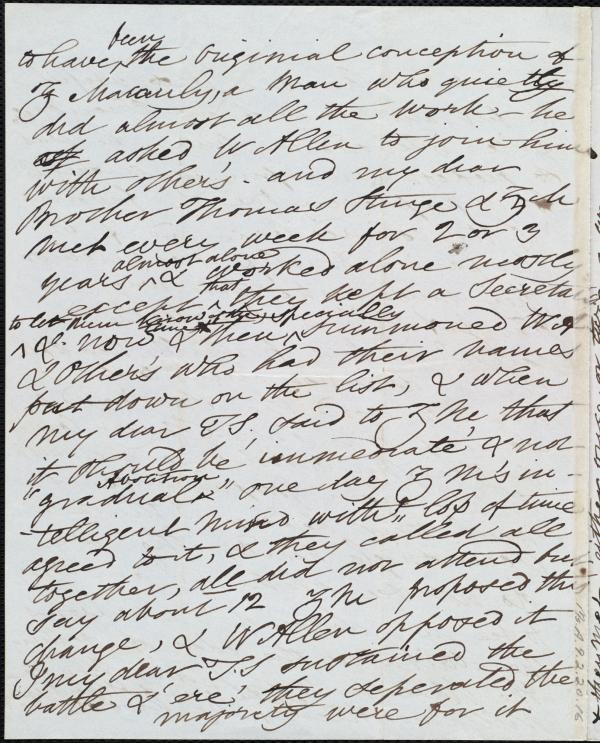 been
to have ^ the originial conception of
Z Macauly, a man who quietly
did almost all the work - he
asked W Allen to join him
with other's - and my dear
Brother Thomas Sturge & Z M
met every week for 2 or 3
almost alone
years ^ & worked alone mostly
that
except ^ they kept a Secreta
to let them know specially
^ & now & then ^ summoned WA
& Other's who had their names
put down on the list, & when
my dear TS. said to Z Mc that
it should be 'immediate' & not
Abolition
"gradual" ^ one day Z M's in-
-telligent mind without loss of time
agreed to it, & they called all
together, all did not attend but
say about 12 Z Mc proposed the
change, & W Allen opposed it
my dear T.S sustained the
battle & 'ere' they seperated the
majority were for it
BA.9.2.20.16